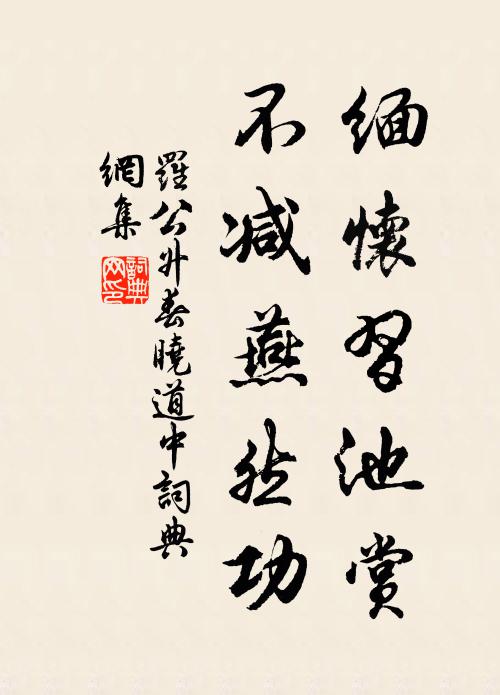 緬懷習池賞
不減燕然功
羅公升春曉道中詞典
網集
詞典
網印